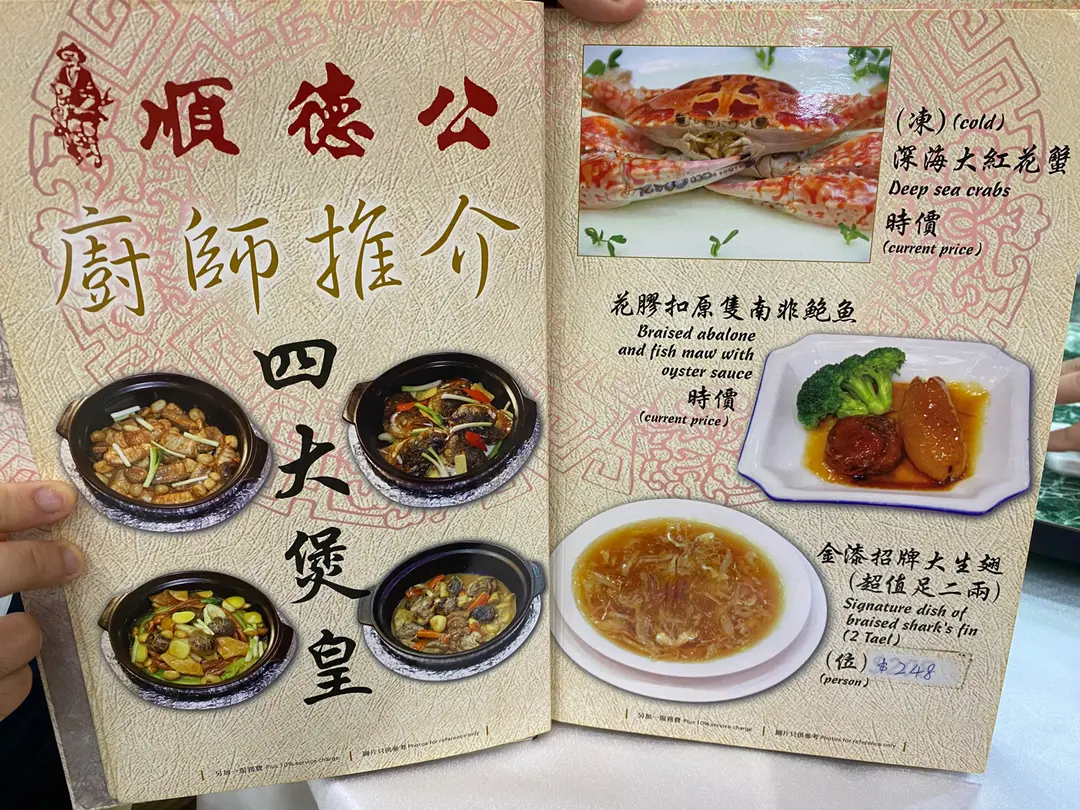 順德公
廚師推介
四大煲皇
另加一服務費 Plus 10% service charge
圖片只供參考 Photos for reference only
(凍) (cold)
深海大紅花蟹
Deep sea crabs
時價
(current price)
花膠扣原隻南非鮑魚
Braised abalone
and fish maw with
oyster sauce
時價
(current price)
金漆招牌大生翅
(超值足二兩)
Signature dish of
braised shark's fin
(2 Tael)
(位) $248
(person)
另加一服務費 Plus 10% service charge
圖片只供參考 Photos for reference only